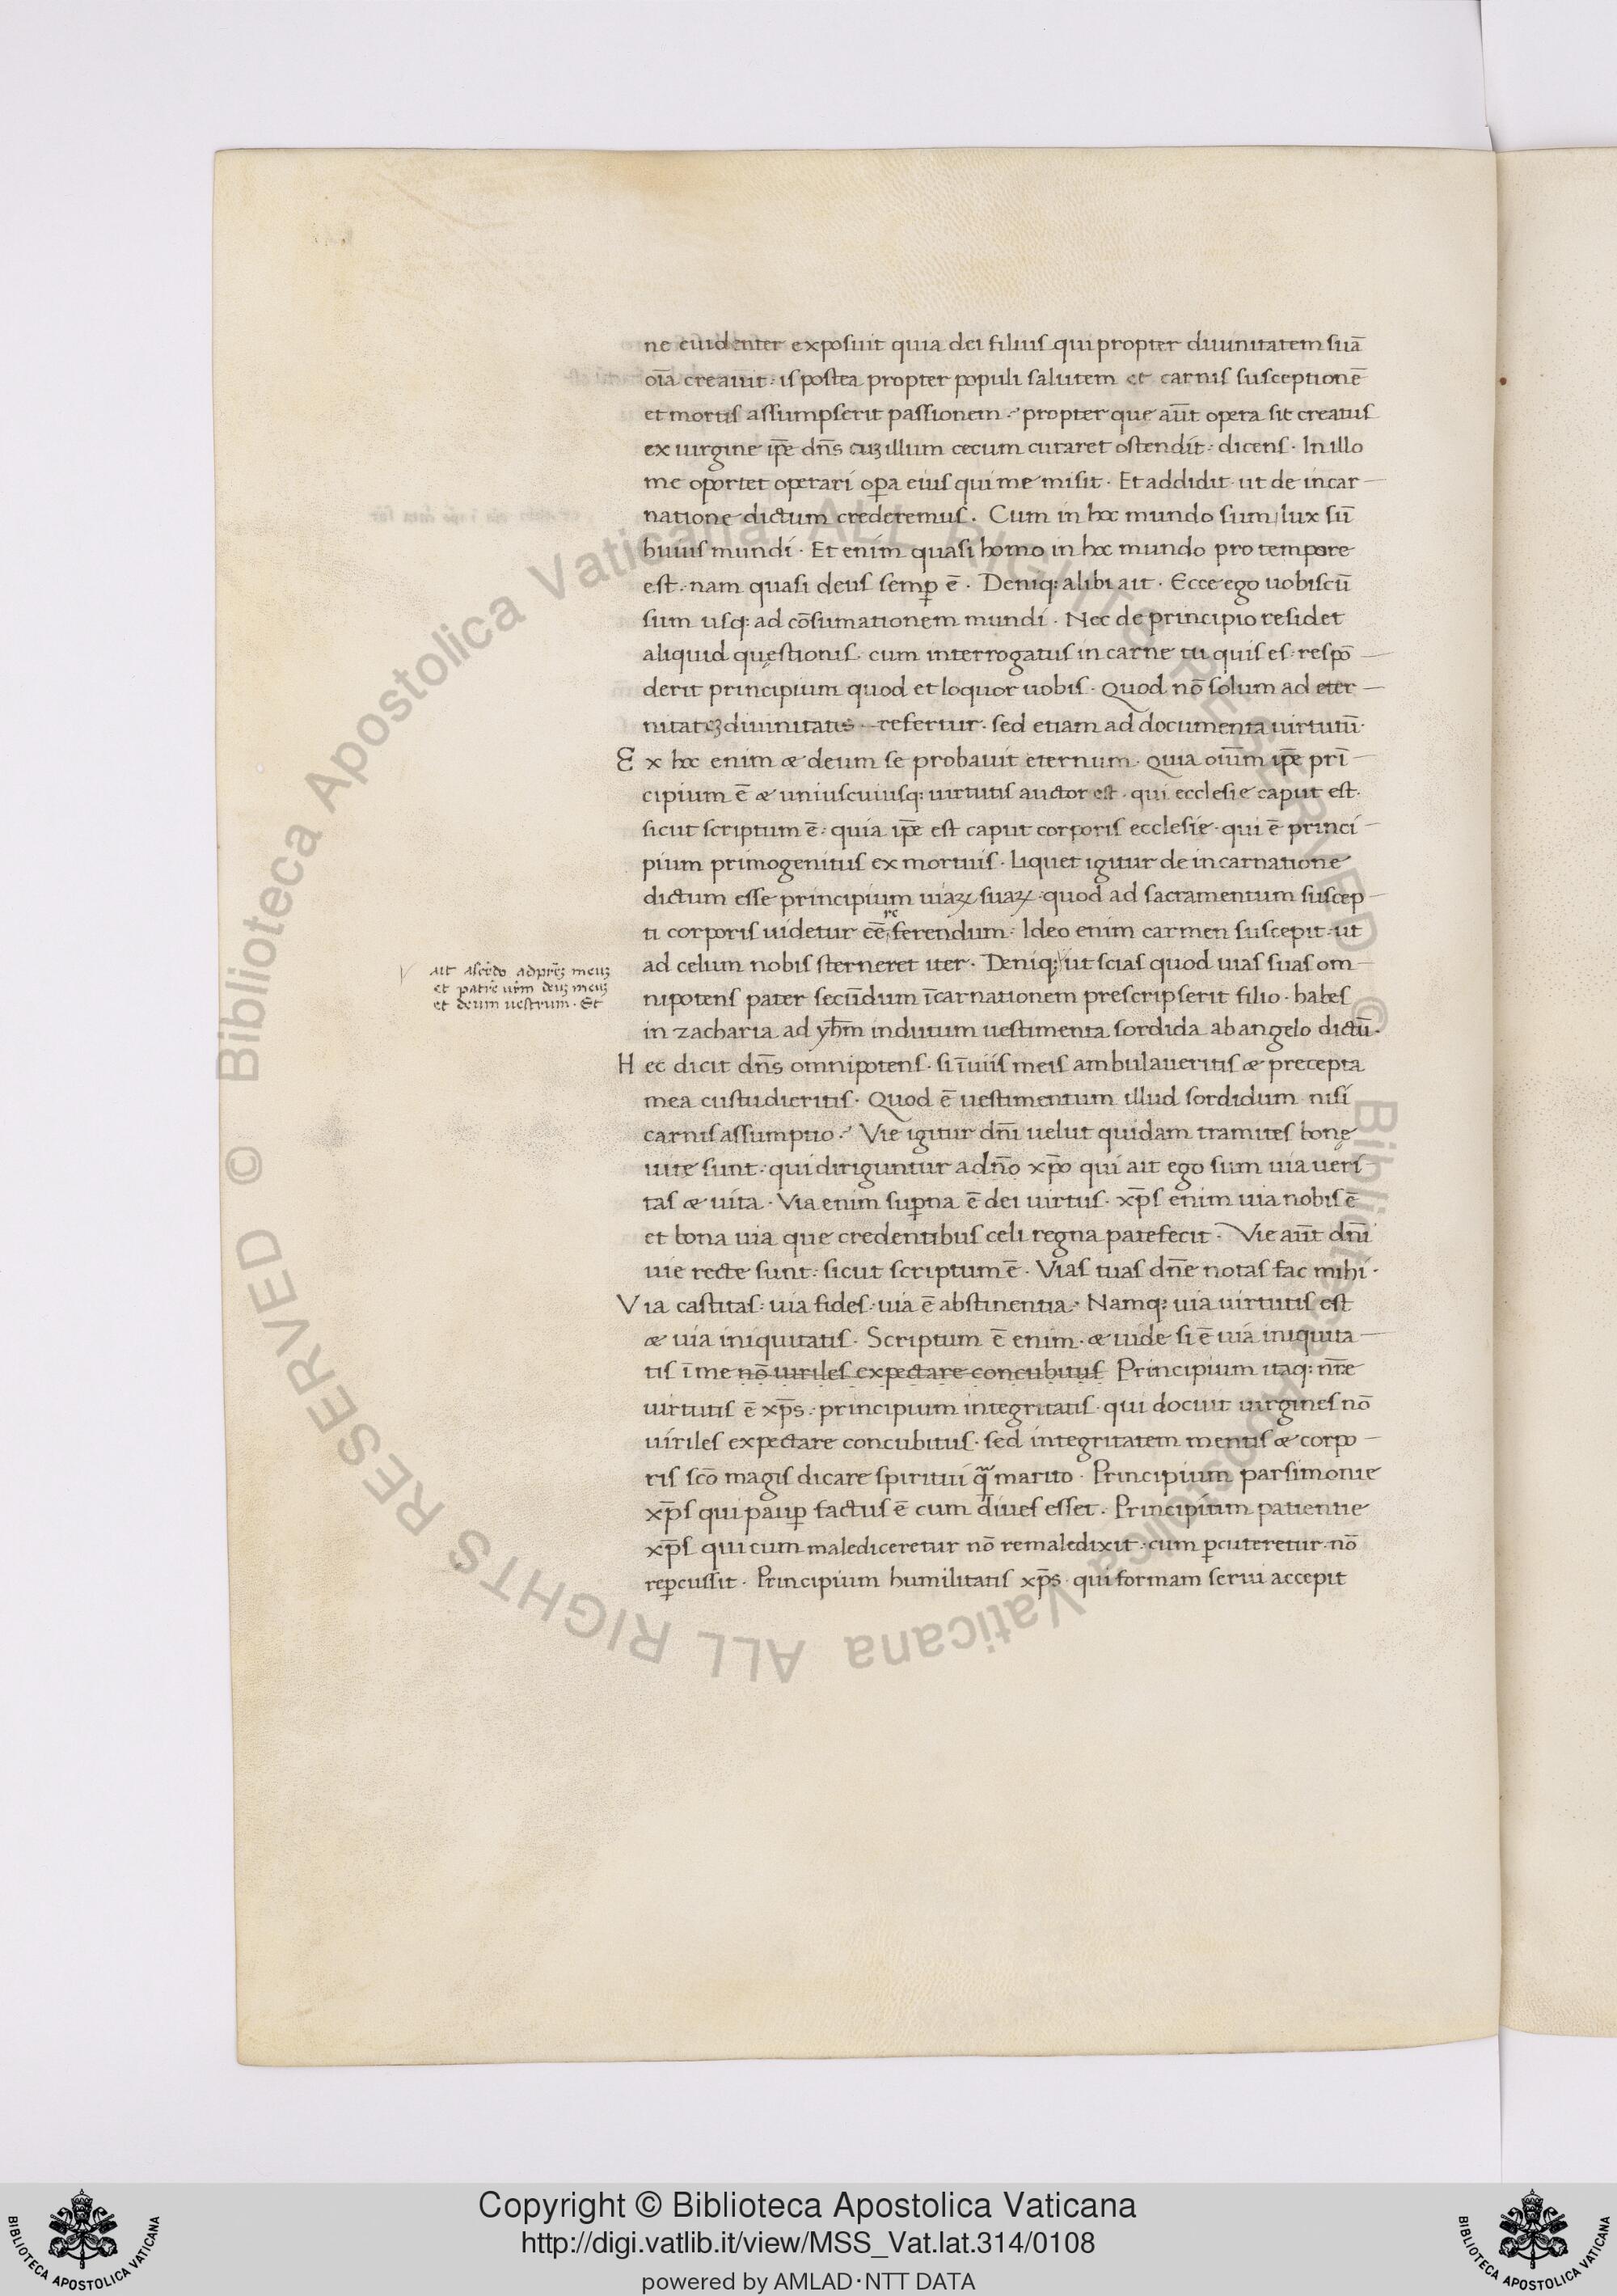 ne euidenter exposuit quia dei filius qui propter diuinitatem suā
oīa creauit · is postea propter populi salutem et carnis susceptionē
et mortis assumpserit passionem · propter que aūt opera sit creatus
ex uirgine ip̄e dn̄s cuʒ illum cecum curaret ostendit · dicens · In illo
me oportet operari op̄a eius qui me misit · Et addidit ut de incar
natione dictum crederemus · Cum in hoc mundo sum lux sū
huius mundi · Et enim quasi homo in hoc mundo pro tempore
est · nam quasi deus semꝑ ē · Deniq: alibi ait · Ecce ego uobiscū
sum usq: ad cōsumationem mundi · Nec de principio residet
aliquid quęstionis cum interrogatus in carne tu quis es · respō
derit principium quod et loquor uobis · Quod nō solum ad eter
nitateʒ diuinitatis refertur · sed etiam ad documenta uirtutū ·
Ex hoc enim æ deum se probauit eternum · Quia oīum ip̄e pri
cipium ē æ uniuscuiusq: uirtutis auctor est · qui ecclesie caput est ·
sicut scriptum ē · quia ip̄e est caput corporis ecclesie · qui ē princi
pium primogenitus ex mortuis · liquet igitur de incarnatione
dictum esse principium uiaꝝ suaꝝ · quod ad sacramentum suscep
re
ti corporis uidetur eē ferendum · Ideo enim carmen suscepit · ut
ad celum nobis sterneret iter · Deniq: ut scias quod uias suas om
ait ascēdo ad pr̄eʒ meuʒ
et patrē ur̄m deuʒ meuʒ
et deum uestrum · Et
nipotens pater secūdum īcarnationem prescripserit filio · habes
in zacharia ad yħm indutum uestimenta sordida ab angelo dictū ·
Hec dicit dn̄s omnipotens · si ī uiis meis ambulaueritis æ precepta
mea custudieritis · Quod ē uestimentum illud sordidum nisi
carnis assumptio · Vie igitur dn̄i uelut quidam tramites bonę
uite sunt · qui diriguntur a dn̄o xp̄o qui ait ego sum uia ueri
tas æ uita · Via enim suꝑna ē dei uirtus · xp̄s enim uia nobis ē
et bona uia que credentibus celi regna patefecit · Vie aūt dn̄i
uie recte sunt · sicut scriptum ē · Vias tuas dn̄e notas fac mihi ·
Via castitas · uia fides · uia ē abstinentia · Namq: uia uirtutis est
æ uia iniquitatis · Scriptum ē enim · æ uide si ē uia iniquita
tis ī me nō uiriles expectare concubitus Principium itaq: nr̄e
uirtutis ē xp̄s · principium integritatis · qui docuit uirgines nō
uiriles expectare concubitus · sed integritatem mentis æ corpo
ris sc̄o magis dicare spiritui q̃ marito · Principium parsimonie
xp̄s qui pauꝑ factus ē cum diues esset · Principium patientie
xp̄s qui cum malediceretur nō remaledixit · cum ꝑcuteretur nō
reꝑcussit · Principium humilitatis xp̄s qui formam serui accepit
© Biblioteca Apostolica Vaticana ALL RIGHTS RESERVED © Biblioteca Apostolica Vaticana ALL RIGHTS RESERVED
Copyright © Biblioteca Apostolica Vaticana
http://digi.vatlib.it/view/MSS_Vat.lat.314/0108
powered by AMLAD·NTT DATA
BIBLIOTECA APOSTOLICA VATICANA
BIBLIOTECA APOSTOLICA VATICANA